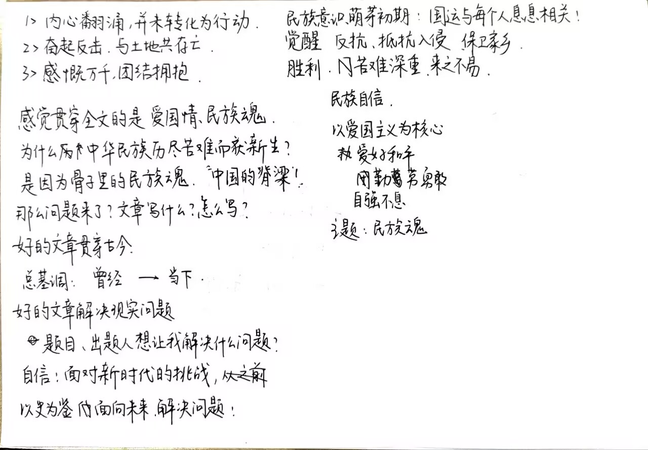 1> 内心翻涌,并未转化为行动.
2> 奋起反击.与土地共存亡.
3> 感慨万千,团结拥抱.
感觉贯穿全文的是 爱国情、民族魂.
为什么 中华民族历尽苦难而获新生?
是因为骨子里的民族魂.“中国的脊梁”!
那么问题来了?文章写什么?怎么写?
好的文章贯穿古今.
总基调: 曾经 → 当下.
好的文章解决现实问题
题目、出题人想让我解决什么问题?
自信:面对新时代的挑战,从之前
以史为鉴 面向未来.解决问题!
民族意识.萌芽初期:国运与每个人息息相关!
觉醒 反抗、抵抗入侵 保卫家乡
胜利. 苦难深重.来之不易.
民族自信.
以爱国主义为核心
热爱好和平
勤劳勇敢
自强不息
主题:民族魂